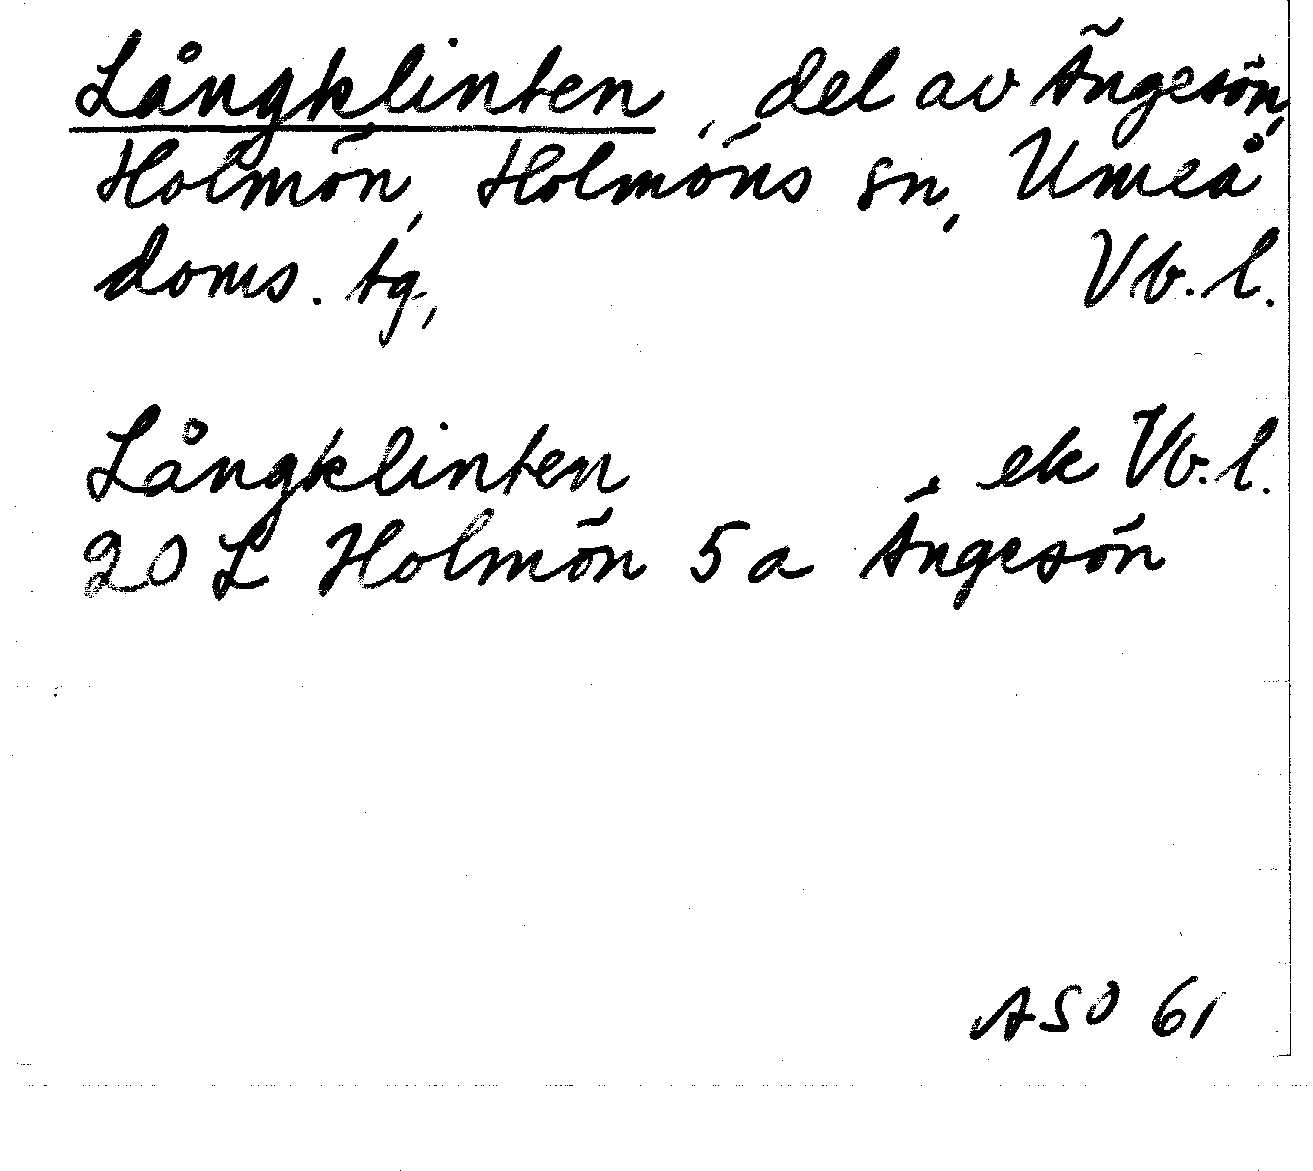 Långklinten, del av Ängesön,
Holmön, Holmöns sn, Umeå
doms. tg, Vb. l.
Långklinten, ek Vb. l.
20 L Holmön 5 a Ängesön
ASO 61